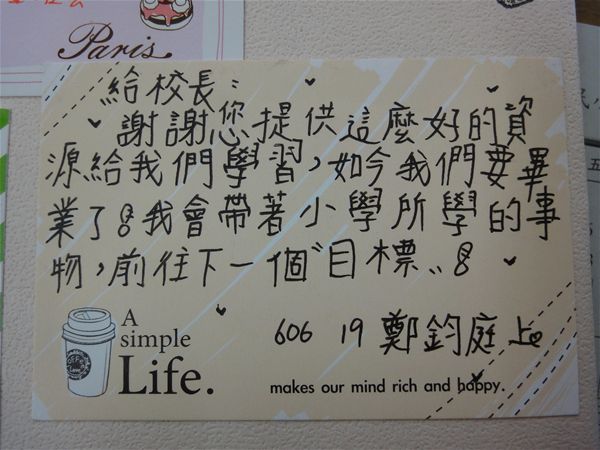 Paris
給校長：
謝謝您提供這麼好的資
源給我們學習，如今我們要畢
業了！我會帶著小學所學的事
物，前往下一個"目標"！
606 19 鄭鈞庭 上
A
simple
Life.
makes our mind rich and happy.
五